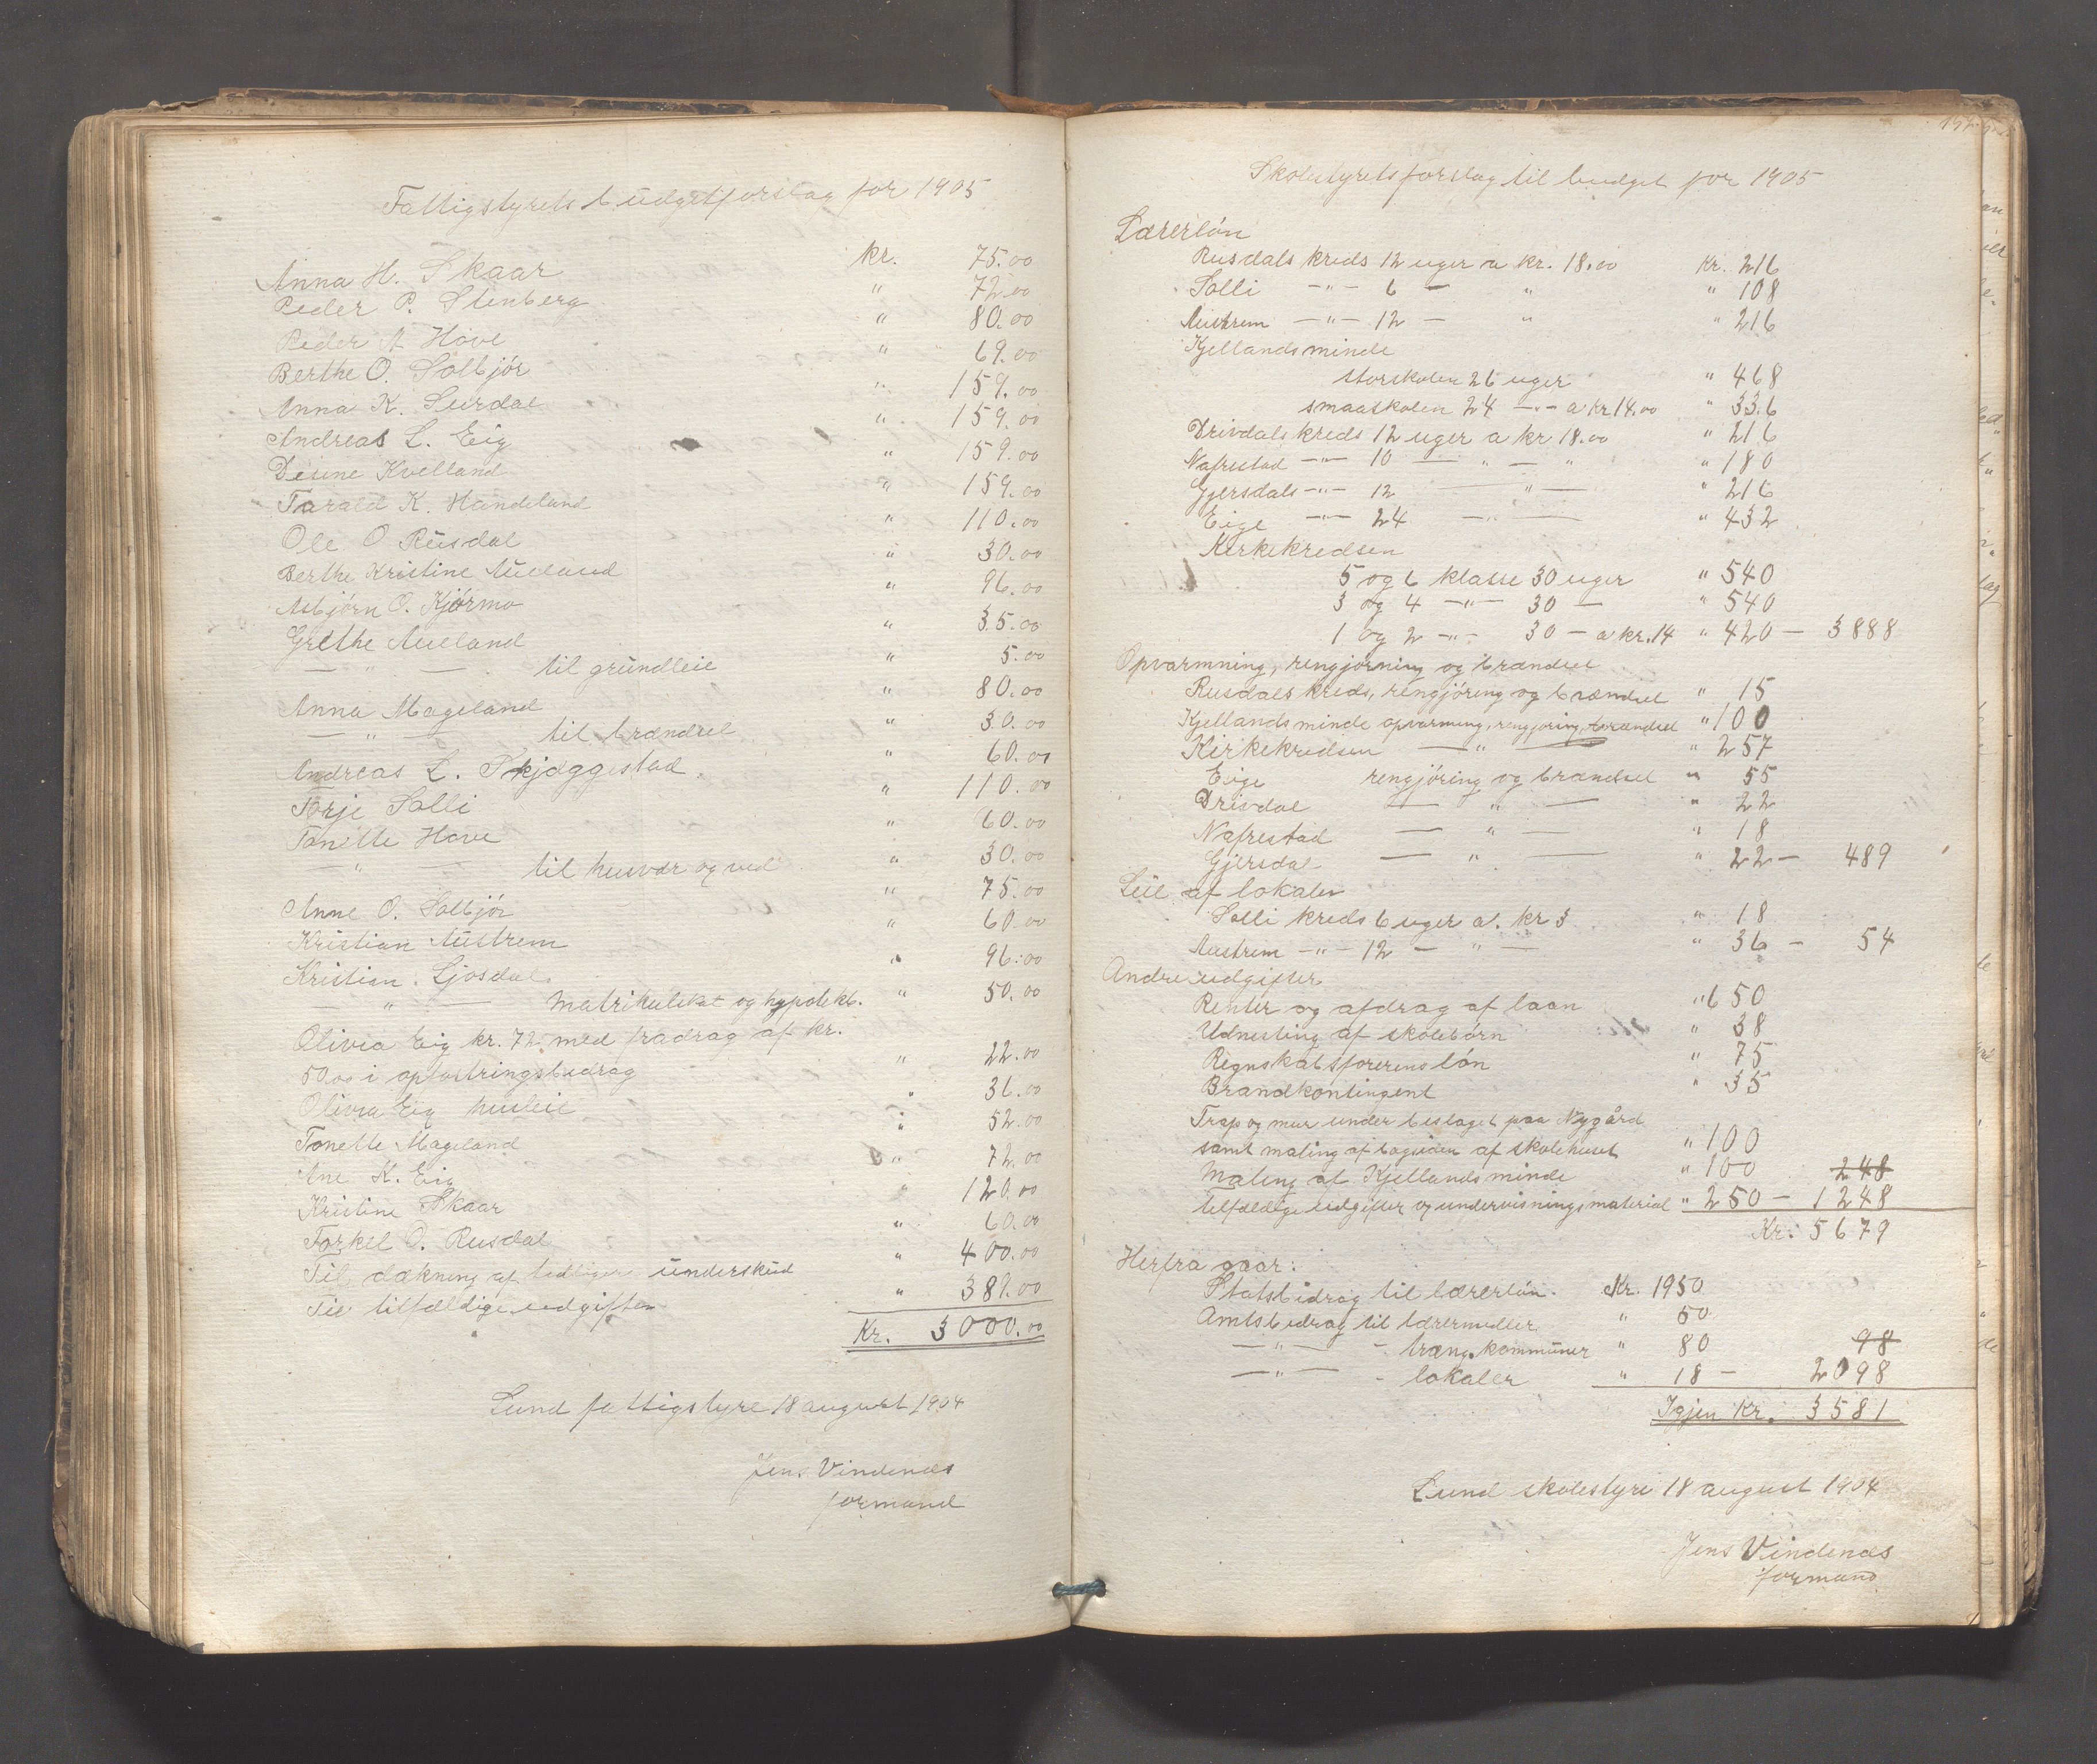 Fattigstyrets budgetforslag for 1905
Anna H. Skaar kr. 75.00
Peder P. Stenberg " 72.00
Peder A Hove " 80.00
Berthe O. Solbjør " 69.00
Anna K. Surdal " 159.00
Andreas L. Eig " 159.00
Kvelland " 159.00
Tarald K. Handeland " 159.00
Ole O Rusdal " 110.00
Berthe Kristine Aueland " 30.00
Asbjørn O. Kjørmo " 96.00
Grethe Aueland " 35.00
— " — til grundleie " 5.00
Anna Mageland " 80.00
— " — til brændsel " 30.00
Andreas L. Skjæggestad " 60.00
Torje Solli " 110.00
Tonette Hove " 60.00
— " — til husvær og ved " 30.00
Anne O. Solbjør " 75.00
Kristian Austrem " 60.00
Kristian Ljosdal " 96.00
— " — Matrikulskat og hypotekb. " 50.00
Olivia Eig kr. 72 med fradrag af kr.
50.00 i opfostringsbidrag " 22.00
Olivia Eig husleie " 36.00
Tonette Mageland " 52.00
Ane K. Eig " 72.00
Kristine Skaar " 120.00
Torkel O. Rusdal " 60.00
Til dækning af tidligere underskud " 400.00
Til tilfældige udgifter " 389.00
Kr. 3000.00
Lund fattigstyre 18 august 1904
Jens Vindenæs
formand
Skolestyrets forslag til budget for 1905
Lærerløn
Rusdals kreds 12 uger a kr. 18.00 Kr. 216
Solli —"— 6 — " " 108
Austrem —"— 12 — " " 216
Kjellandsminde
storskolen 26 uger " 468
smaaskolen 24 —"— a kr 14.00 " 336
Drivdals kreds 12 uger a kr 18.00 " 216
Nafrestad —"— 10 — " — " " 180
Gjersdals —"— 12 — " — " 216
Eige —"— 24 — " — " 432
Kirkekredsen
5 og 6 klasse 30 uger " 540
3 og 4 —"— 30 — " 540
1 og 2 —"— 30 — a kr. 14 " 420 — 3888
Opvarmning, rengjørning og brændsel
Rusdals kreds, rengjøring og brændsel " 15
Kjellandsminde opvarmning, rengjøring, brændsel " 100
Kirkekredsen — " — " 257
Eige rengjøring og brændsel " 55
Drivdal — " — " 22
Nafrestad — " — " 18
Gjersdal — " — " 22 — 489
Leie af lokaler
Solli kreds 6 uger a. kr 3 " 18
Austrem —"— 12 — " — " 36 — 54
Andre udgifter
Renter og afdrag af laan " 650
Udnesting af skolebørn " 38
Regnskabsførerens løn " 75
Brandkontingent " 35
Trap og mur under beslaget paa Nygård
samt maling af bagsiden af skolehuset " 100
Maling af Kjellandsminde " 100 248
tilfældige udgifter og undervisningsmateriel " 250 — 1248
Kr. 5679
Herfra gaar:
Statsbidrag til lærerløn. Kr. 1950
Amtsbidrag til læremidler " 50
— " — - træng. kommuner " 80 98
— " — - lokaler " 18 — 2098
Igjen Kr. 3581
Lund skolestyre 18 august 1904
Jens Vindenæs
formand